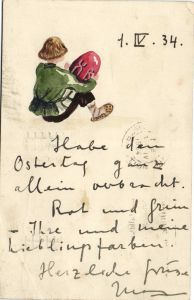 1. IV. 34.
XB
Habe den
Ostertag ganz
allein verbracht.
Rot und Grün
– Ihre und meine
Lieblingsfarben.
Herzliche Grüsse